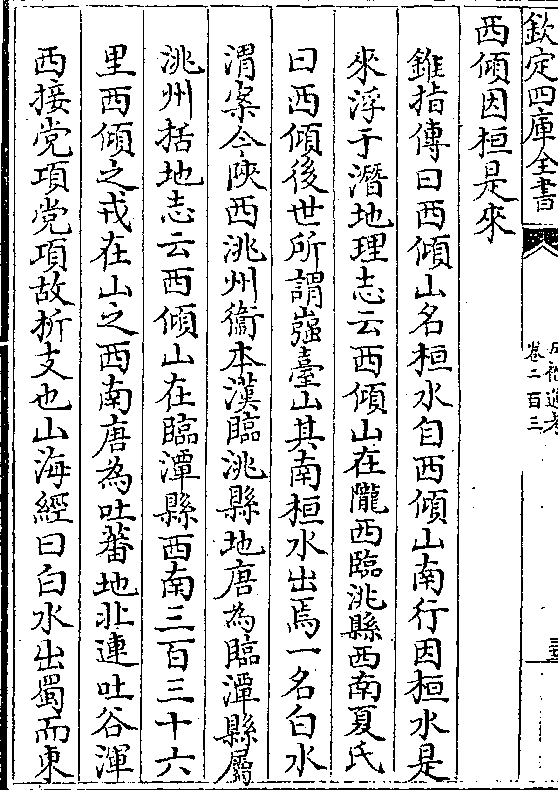 欽定四庫全書
卷二百三
西傾因桓是來
錐指傳曰西傾山名桓水自西傾山南行因桓水是
來浮于潛地理志云西傾山在隴西臨洮縣西南夏氏
曰西傾後世所謂嵹臺山其南桓水出焉一名白水
渭案今陜西洮州衞本漢臨洮縣地唐為臨潭縣屬
洮州括地志云西傾山在臨潭縣西南三百三十六
里西傾之戎在山之西南唐為吐蕃地北連吐谷渾
西接党項党項故析支也山海經曰白水出蜀而東